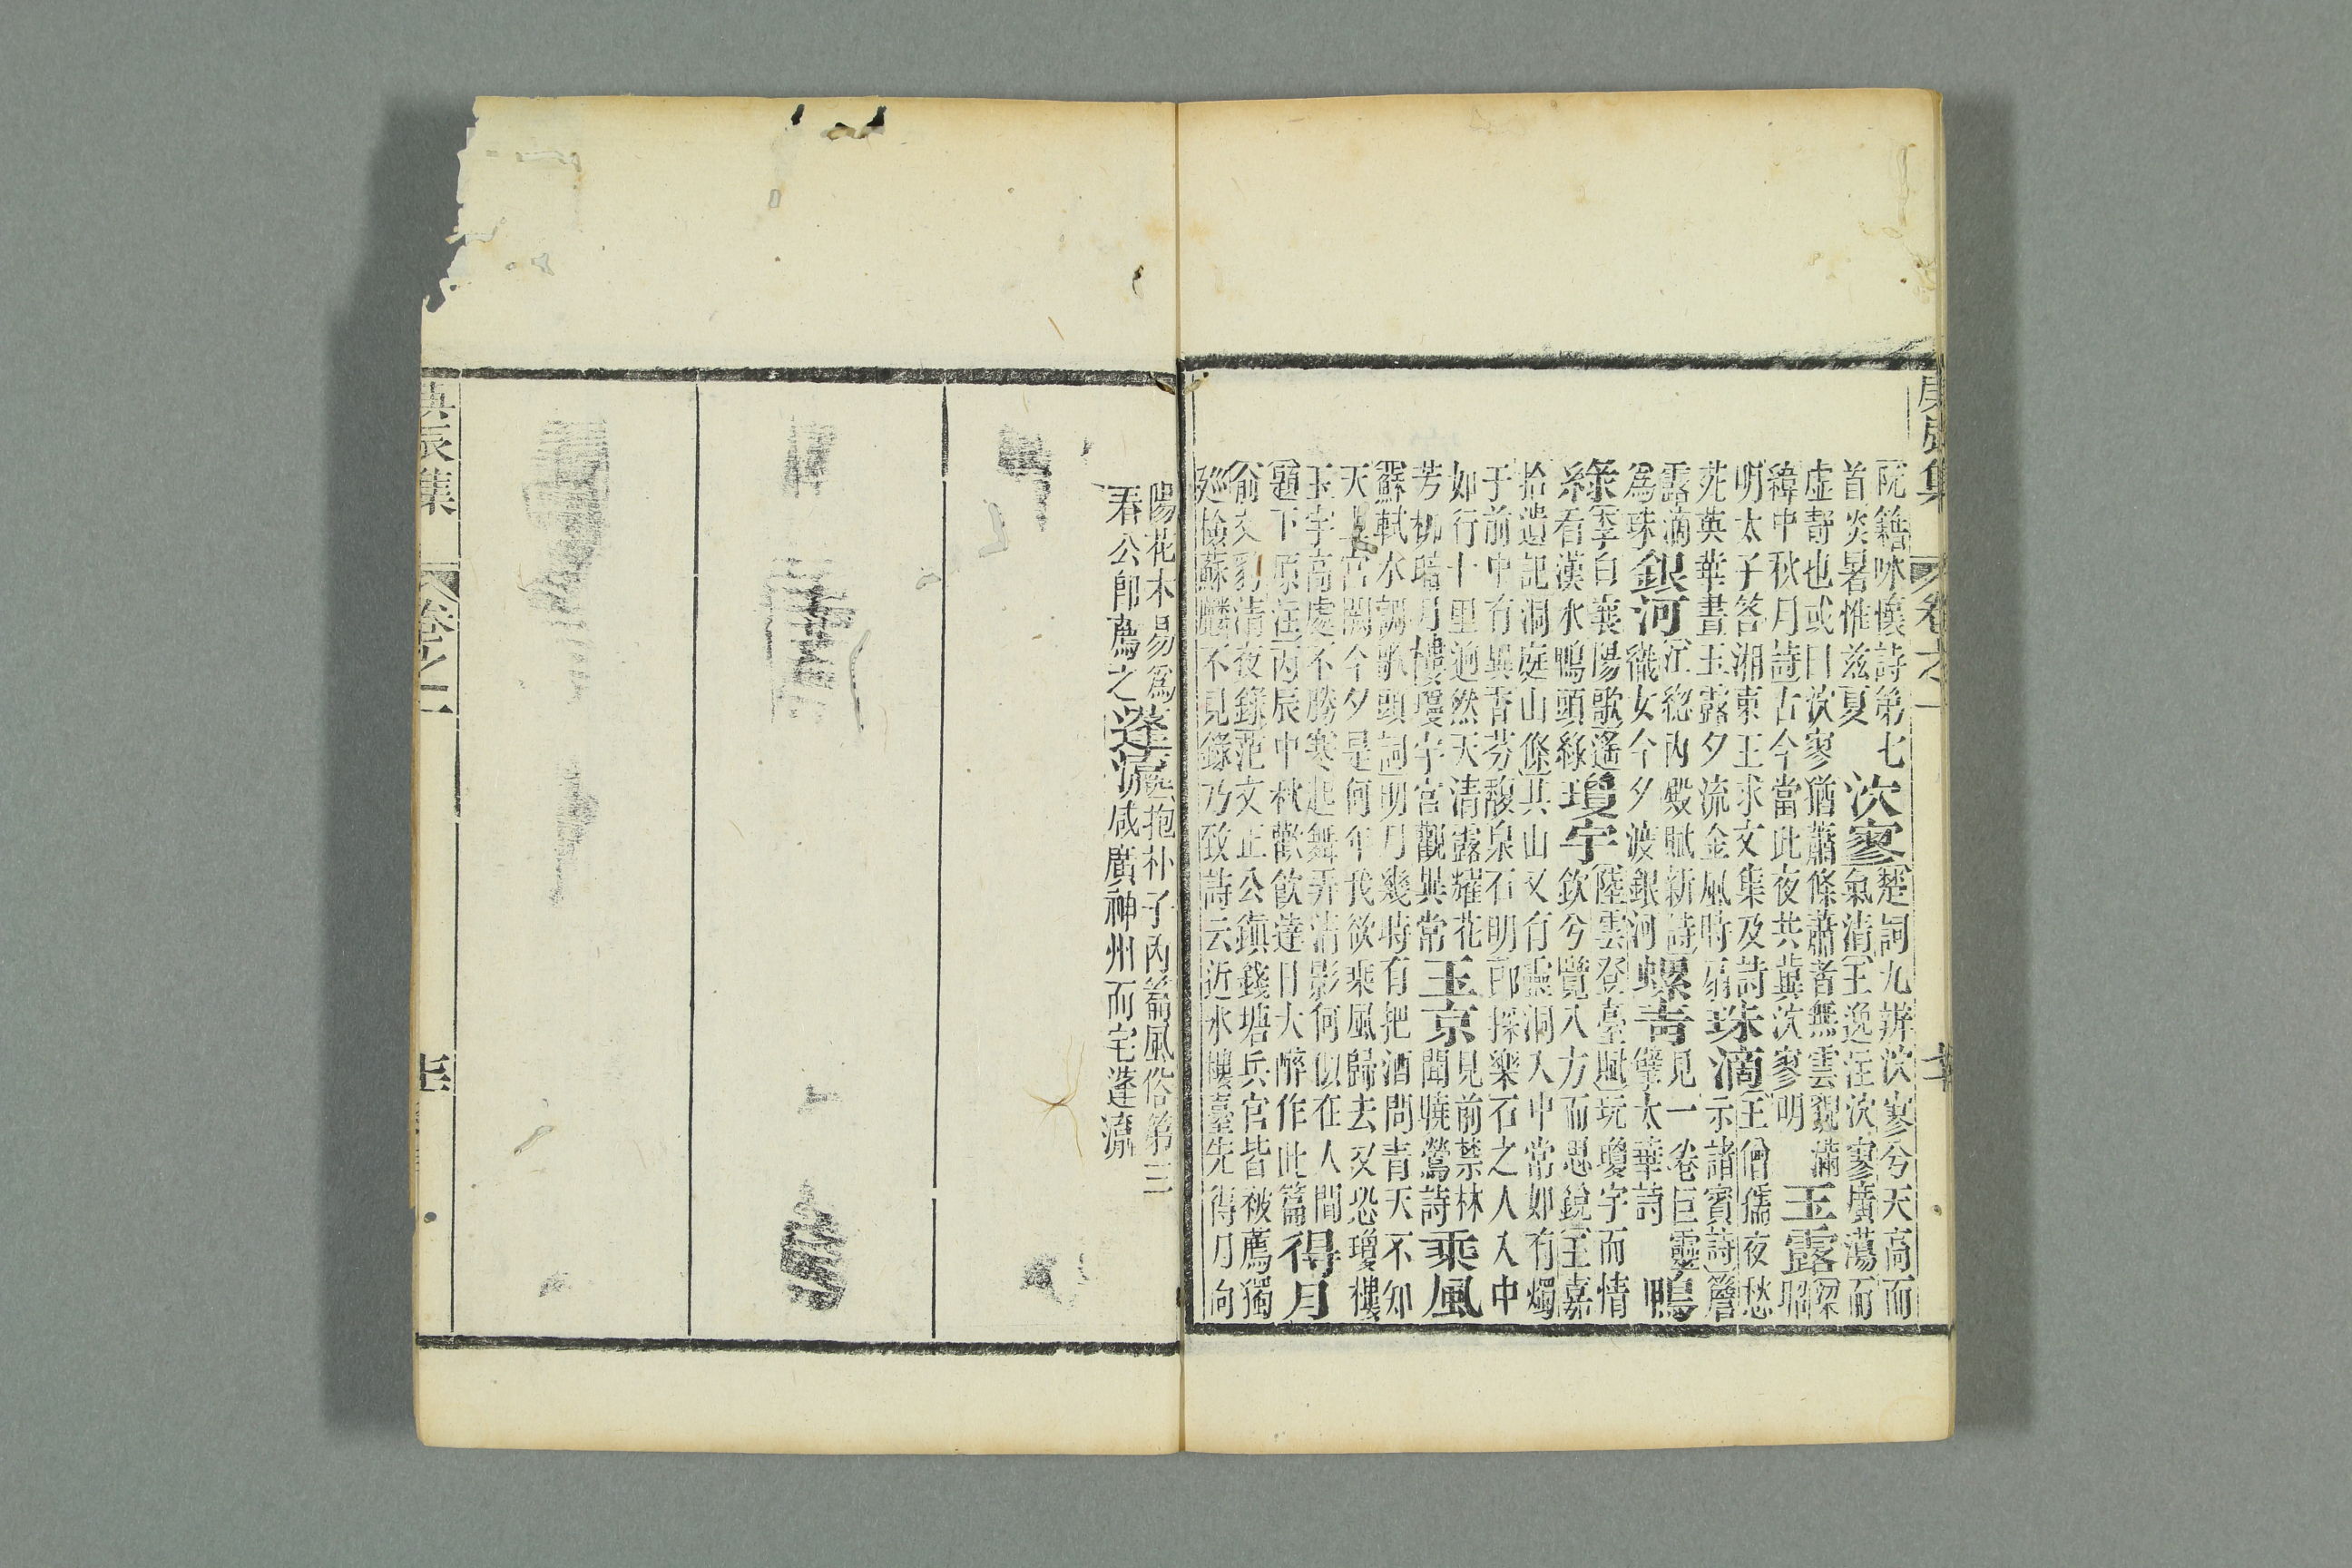 庚辰集 卷之一
阮籍咏懷詩第七
首炎暑惟兹夏
泬寥
楚詞九辨泬寥兮天高而
氣清王逸注泬寥廣蕩而
虛靜也或曰泬寥猶蕭條蕭者無雲貌 滿
緯中秋月詩古今當此夜共冀泬寥明
玉露
梁
昭
明太子答湘東王求文集及詩
苑英華書玉露夕流金風時扇
珠滴
王僧孺夜愁
示諸賓詩簷
露滴
為珠
銀河
江總內殿賦新詩
織女今夕渡銀河
螺青
見一卷巨靈
擘太華詩
鴨
綠
李白襄陽歌遙
看漢水鴨頭綠
瓊宇
陸雲登臺賦玩瓊宇而情
欽兮覽八方而思銳王嘉
拾遺記洞庭山條其山又有靈洞入中常如有燭
于前中有異香芬馥泉石明朗採藥石之人入中
如行十里迥然天清露耀花
芳柳暗丹樓瓊宇宮觀異常
玉京
見前禁林
聞曉鶯詩
乘風
蘇軾水調歌頭詞明月幾時有把酒問青天不知
天上宮闕今夕是何年我欲乘風歸去又恐瓊樓
玉宇高處不勝寒起舞弄清影何似在人間
題下原注丙辰中秋歡飲達旦大醉作此篇
得月
俞文豹清夜錄范文正公鎮錢塘兵官皆被薦獨
巡檢蘇麟不見錄乃致詩云近水樓臺先得月向
陽花木易為
春公即薦之
蓬瀛
抱朴子內篇風俗第三
咸廣神州而宅蓬瀛
庚辰集 卷之一